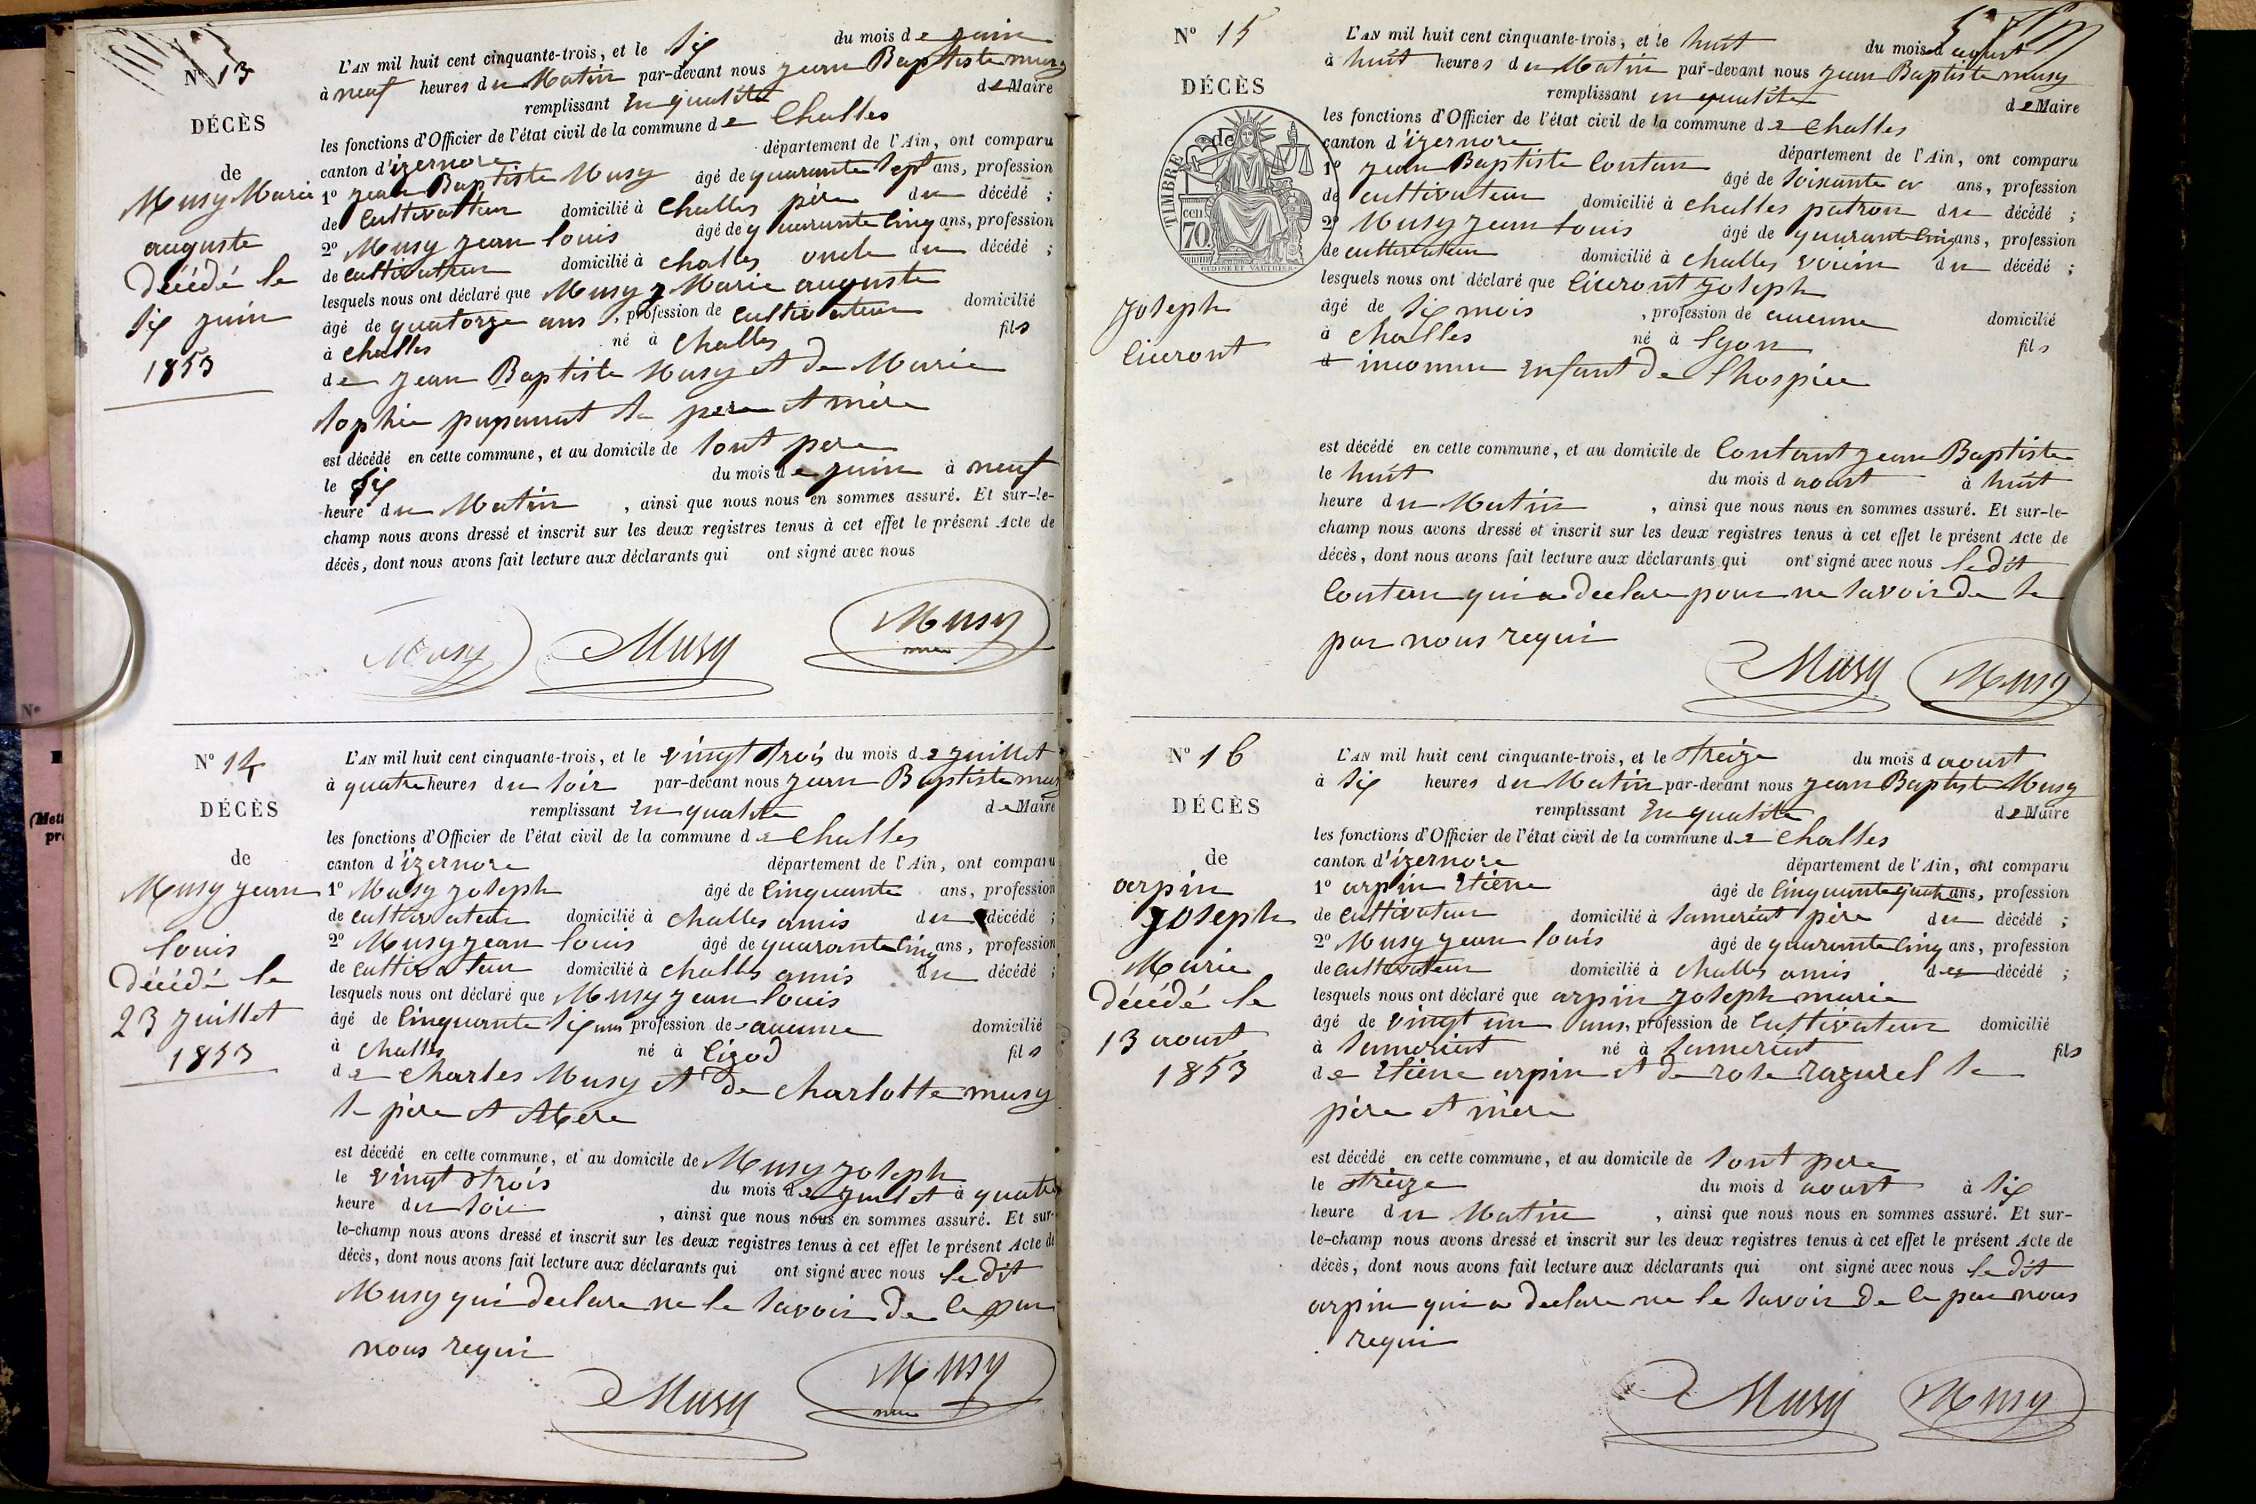 N° 13
DÉCÈS
de
Musy Marie
auguste
décédé le
Six juin
1853
L'AN mil huit cent cinquante-trois, et le Six du mois de juin
à neuf heures du Matin par-devant nous jean Baptiste musy
remplissant En qualité de Maire
les fonctions d'Officier de l'état civil de la commune de Challes
canton d'izernore département de l'Ain, ont comparu
1° jean Baptiste Musy âgé de quarante Sept ans, profession
de Cultivateur domicilié à Challes père du décédé ;
2° Musy jean louis âgé de quarante cinq ans, profession
de cultivateur domicilié à challes oncle du décédé ;
lesquels nous ont déclaré que Musy Marie auguste
âgé de quatorze ans, profession de cultivateur domicilié
à challes né à challes fils
de jean Baptiste Musy et de Marie
Sophie papanut Se père et mère
est décédé en cette commune, et au domicile de Sont pere
le Six du mois de juin à neuf
heure du Matin, ainsi que nous nous en sommes assuré. Et sur-le-
champ nous avons dressé et inscrit sur les deux registres tenus à cet effet le présent Acte de
décès, dont nous avons fait lecture aux déclarants qui ont signé avec nous
Musy Musy Musy
N° 14
DÉCÈS
de
Musy jean
louis
décédé le
23 juillet
1853
L'AN mil huit cent cinquante-trois, et le vingt trois du mois de juillet
à quatre heures du Soir par-devant nous jean Baptiste musy
remplissant En qualité de Maire
les fonctions d'Officier de l'état civil de la commune de challes
canton d'izernore département de l'Ain, ont comparu
1° Musy joseph âgé de cinquante ans, profession
de cultivateur domicilié à challes amis du décédé ;
2° Musy jean louis âgé de quarante cinq ans, profession
de cultivateur domicilié à challes amis du décédé ;
lesquels nous ont déclaré que Musy jean louis
âgé de cinquante Six ans profession de aucune domicilié
à challes né à Cizod fils
de charles Musy et de charlotte musy
Se père et Mere
est décédé en cette commune, et au domicile de Musy joseph
le vingt trois du mois de juillet à quatre
heure du Soir, ainsi que nous nous en sommes assuré. Et sur-
le-champ nous avons dressé et inscrit sur les deux registres tenus à cet effet le présent Acte de
décès, dont nous avons fait lecture aux déclarants qui ont signé avec nous le dit
Musy qui declare ne le Savoir de ce par
nous requi
Musy Musy
N° 15
DÉCÈS
de
TIMBRE
70
joseph
Ciceront
L'AN mil huit cent cinquante-trois, et le huit du mois d aoust
à huit heures du Matin par-devant nous jean Baptiste musy
remplissant en qualité de Maire
les fonctions d'Officier de l'état civil de la commune de Challes
canton d'izernore département de l'Ain, ont comparu
1° jean Baptiste Contan âgé de Soixante ans, profession
de cultivateur domicilié à challes patron du décédé ;
2° Musy jean louis âgé de quarant cinq ans, profession
de cultivateur domicilié à challes voisin du décédé ;
lesquels nous ont déclaré que Ciceront joseph
âgé de Six mois, profession de aucune domicilié
à challes né à lyon fils
d inconnu Enfant de lhospice
est décédé en cette commune, et au domicile de Contant jean Baptiste
le huit du mois d aoust à huit
heure du Matin, ainsi que nous nous en sommes assuré. Et sur-le-
champ nous avons dressé et inscrit sur les deux registres tenus à cet effet le présent Acte de
décès, dont nous avons fait lecture aux déclarants qui ont signé avec nous le dit
Contan qui a declare pour ne Savoir de Se
par nous requi
Musy Musy
N° 16
DÉCÈS
de
arpin
joseph
Marie
décédé le
13 aoust
1853
L'AN mil huit cent cinquante-trois, et le treize du mois d aoust
à Six heures du Matin par-devant nous jean Baptiste Musy
remplissant En qualité de Maire
les fonctions d'Officier de l'état civil de la commune de challes
canton d'izernore département de l'Ain, ont comparu
1° arpin Etiene âgé de cinquante quatre ans, profession
de cultivateur domicilié à Sameriat père du décédé ;
2° Musy jean louis âgé de quarante cinq ans, profession
de cultivateur domicilié à challes amis du décédé ;
lesquels nous ont déclaré que arpin joseph marie
âgé de vingt un ans, profession de Cultivateur domicilié
à Sameriat né à Sameriat fils
de Etiene arpin et de rose razurel Se
père et mère
est décédé en cette commune, et au domicile de Sont pere
le treize du mois d aoust à Six
heure du Matin, ainsi que nous nous en sommes assuré. Et sur-
le-champ nous avons dressé et inscrit sur les deux registres tenus à cet effet le présent Acte de
décès, dont nous avons fait lecture aux déclarants qui ont signé avec nous le dit
arpin qui a declare ne le Savoir de ce par nous
requi
Musy Musy